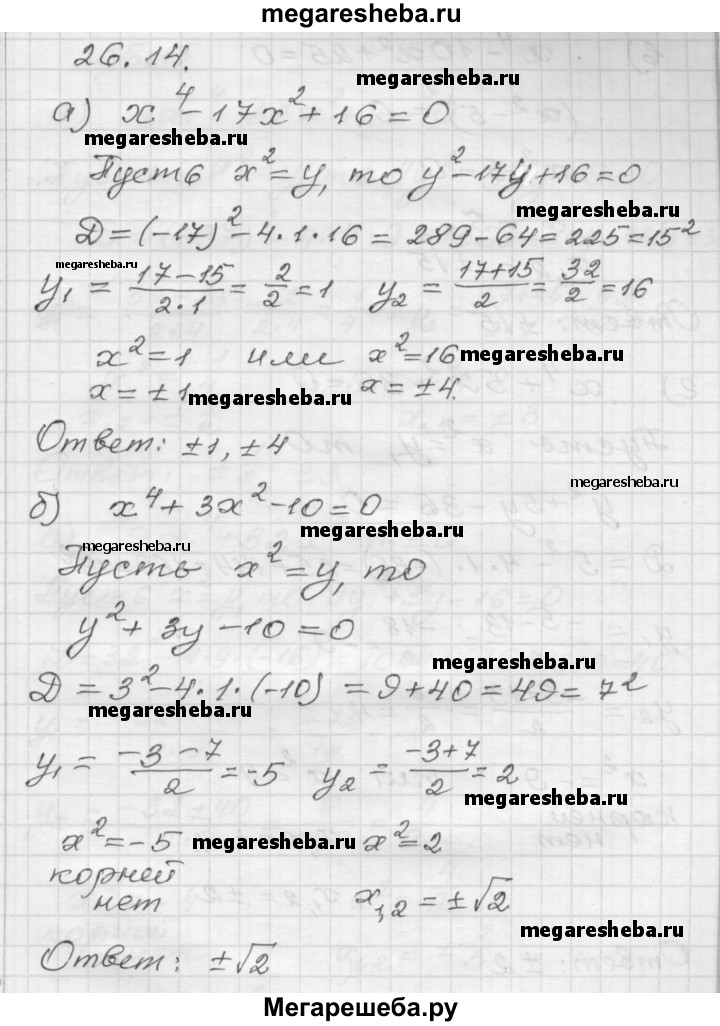 megaresheba.ru
26.14.
megaresheba.ru
а) x⁴ - 17x² + 16 = 0
megaresheba.ru
Пусть x² = y, то y² - 17y + 16 = 0
megaresheba.ru
D = (-17)² - 4·1·16 = 289 - 64 = 225 = 15²
megaresheba.ru
y₁ = (17-15)/(2·1) = 2/2 = 1 y₂ = (17+15)/2 = 32/2 = 16
x² = 1 или x² = 16 megaresheba.ru
x = ±1 megaresheba.ru x = ±4.
Ответ: ±1, ±4
megaresheba.ru
б) x⁴ + 3x² - 10 = 0
megaresheba.ru
megaresheba.ru
Пусть x² = y, то
y² + 3y - 10 = 0
megaresheba.ru
D = 3² - 4·1·(-10) = 9 + 40 = 49 = 7²
megaresheba.ru
y₁ = (-3-7)/2 = -5 y₂ = (-3+7)/2 = 2
megaresheba.ru
x² = -5 megaresheba.ru x² = 2
корней
нет x₁,₂ = ±√2
megaresheba.ru
Ответ: ±√2
Мегарешеба.ру